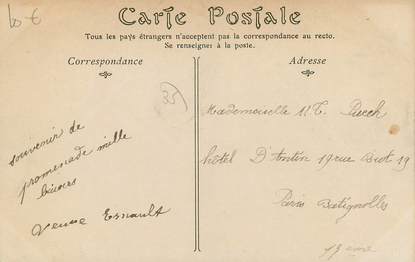 10 €
Carte Postale
Tous les pays étrangers n'acceptent pas la correspondance au recto.
Se renseigner à la poste.
Correspondance
Adresse
35
souvenir de
promenade mille
baisers
Veuve Esnault
Mademoiselle M. T. Puech
hôtel D'Antin 19 rue Biot 19
Paris Batignolles
17 eme